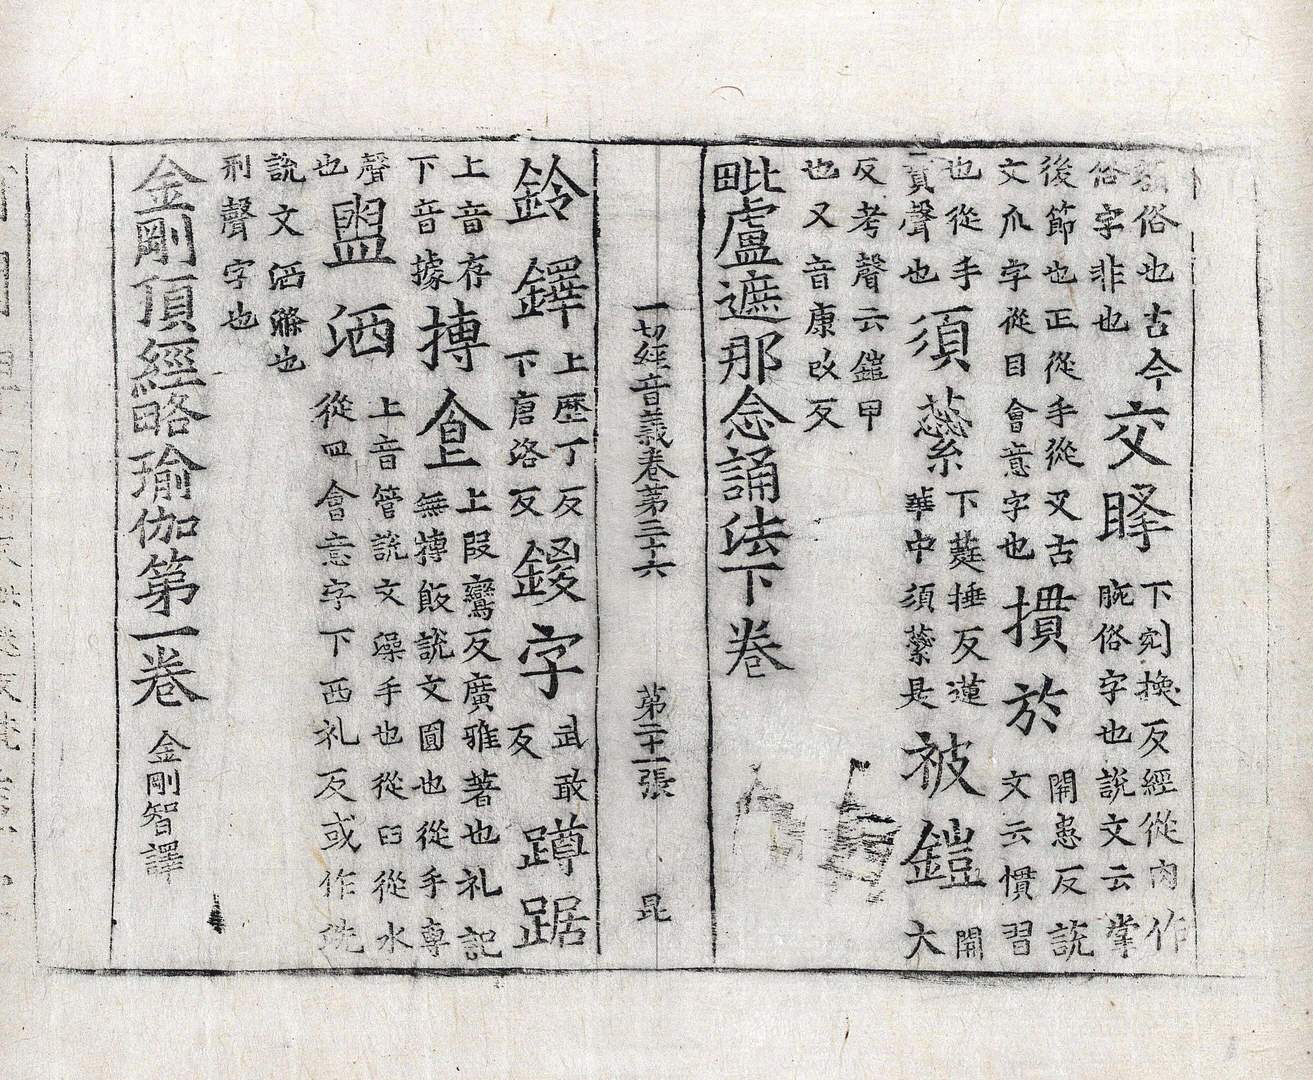 額俗也古今俗字非也交下剜換反經從肉作腕俗字也說文云掌
後節也正從手從叉古文爪字從目會意字也摜於開患反說文云慣習
也從手貫聲也須蘂下蕤捶反蓮華中須蘂是被鎧開大
反考聲云鎧甲也又音康改反
毗盧遮那念誦法下卷
一切經音義卷第三十六 第二十一張 昆
鈴鐸上歷丁反下唐洛反鑁字武敢反蹲踞
上音存下音據摶食上段鸞反廣雅著也礼記無摶飯說文圓也從手專
聲也盥洒上音管說文澡手也從臼從水從皿會意字下西礼反或作洗
說文洒滌也刑聲字也
金剛頂經略瑜伽第一卷 金剛智譯